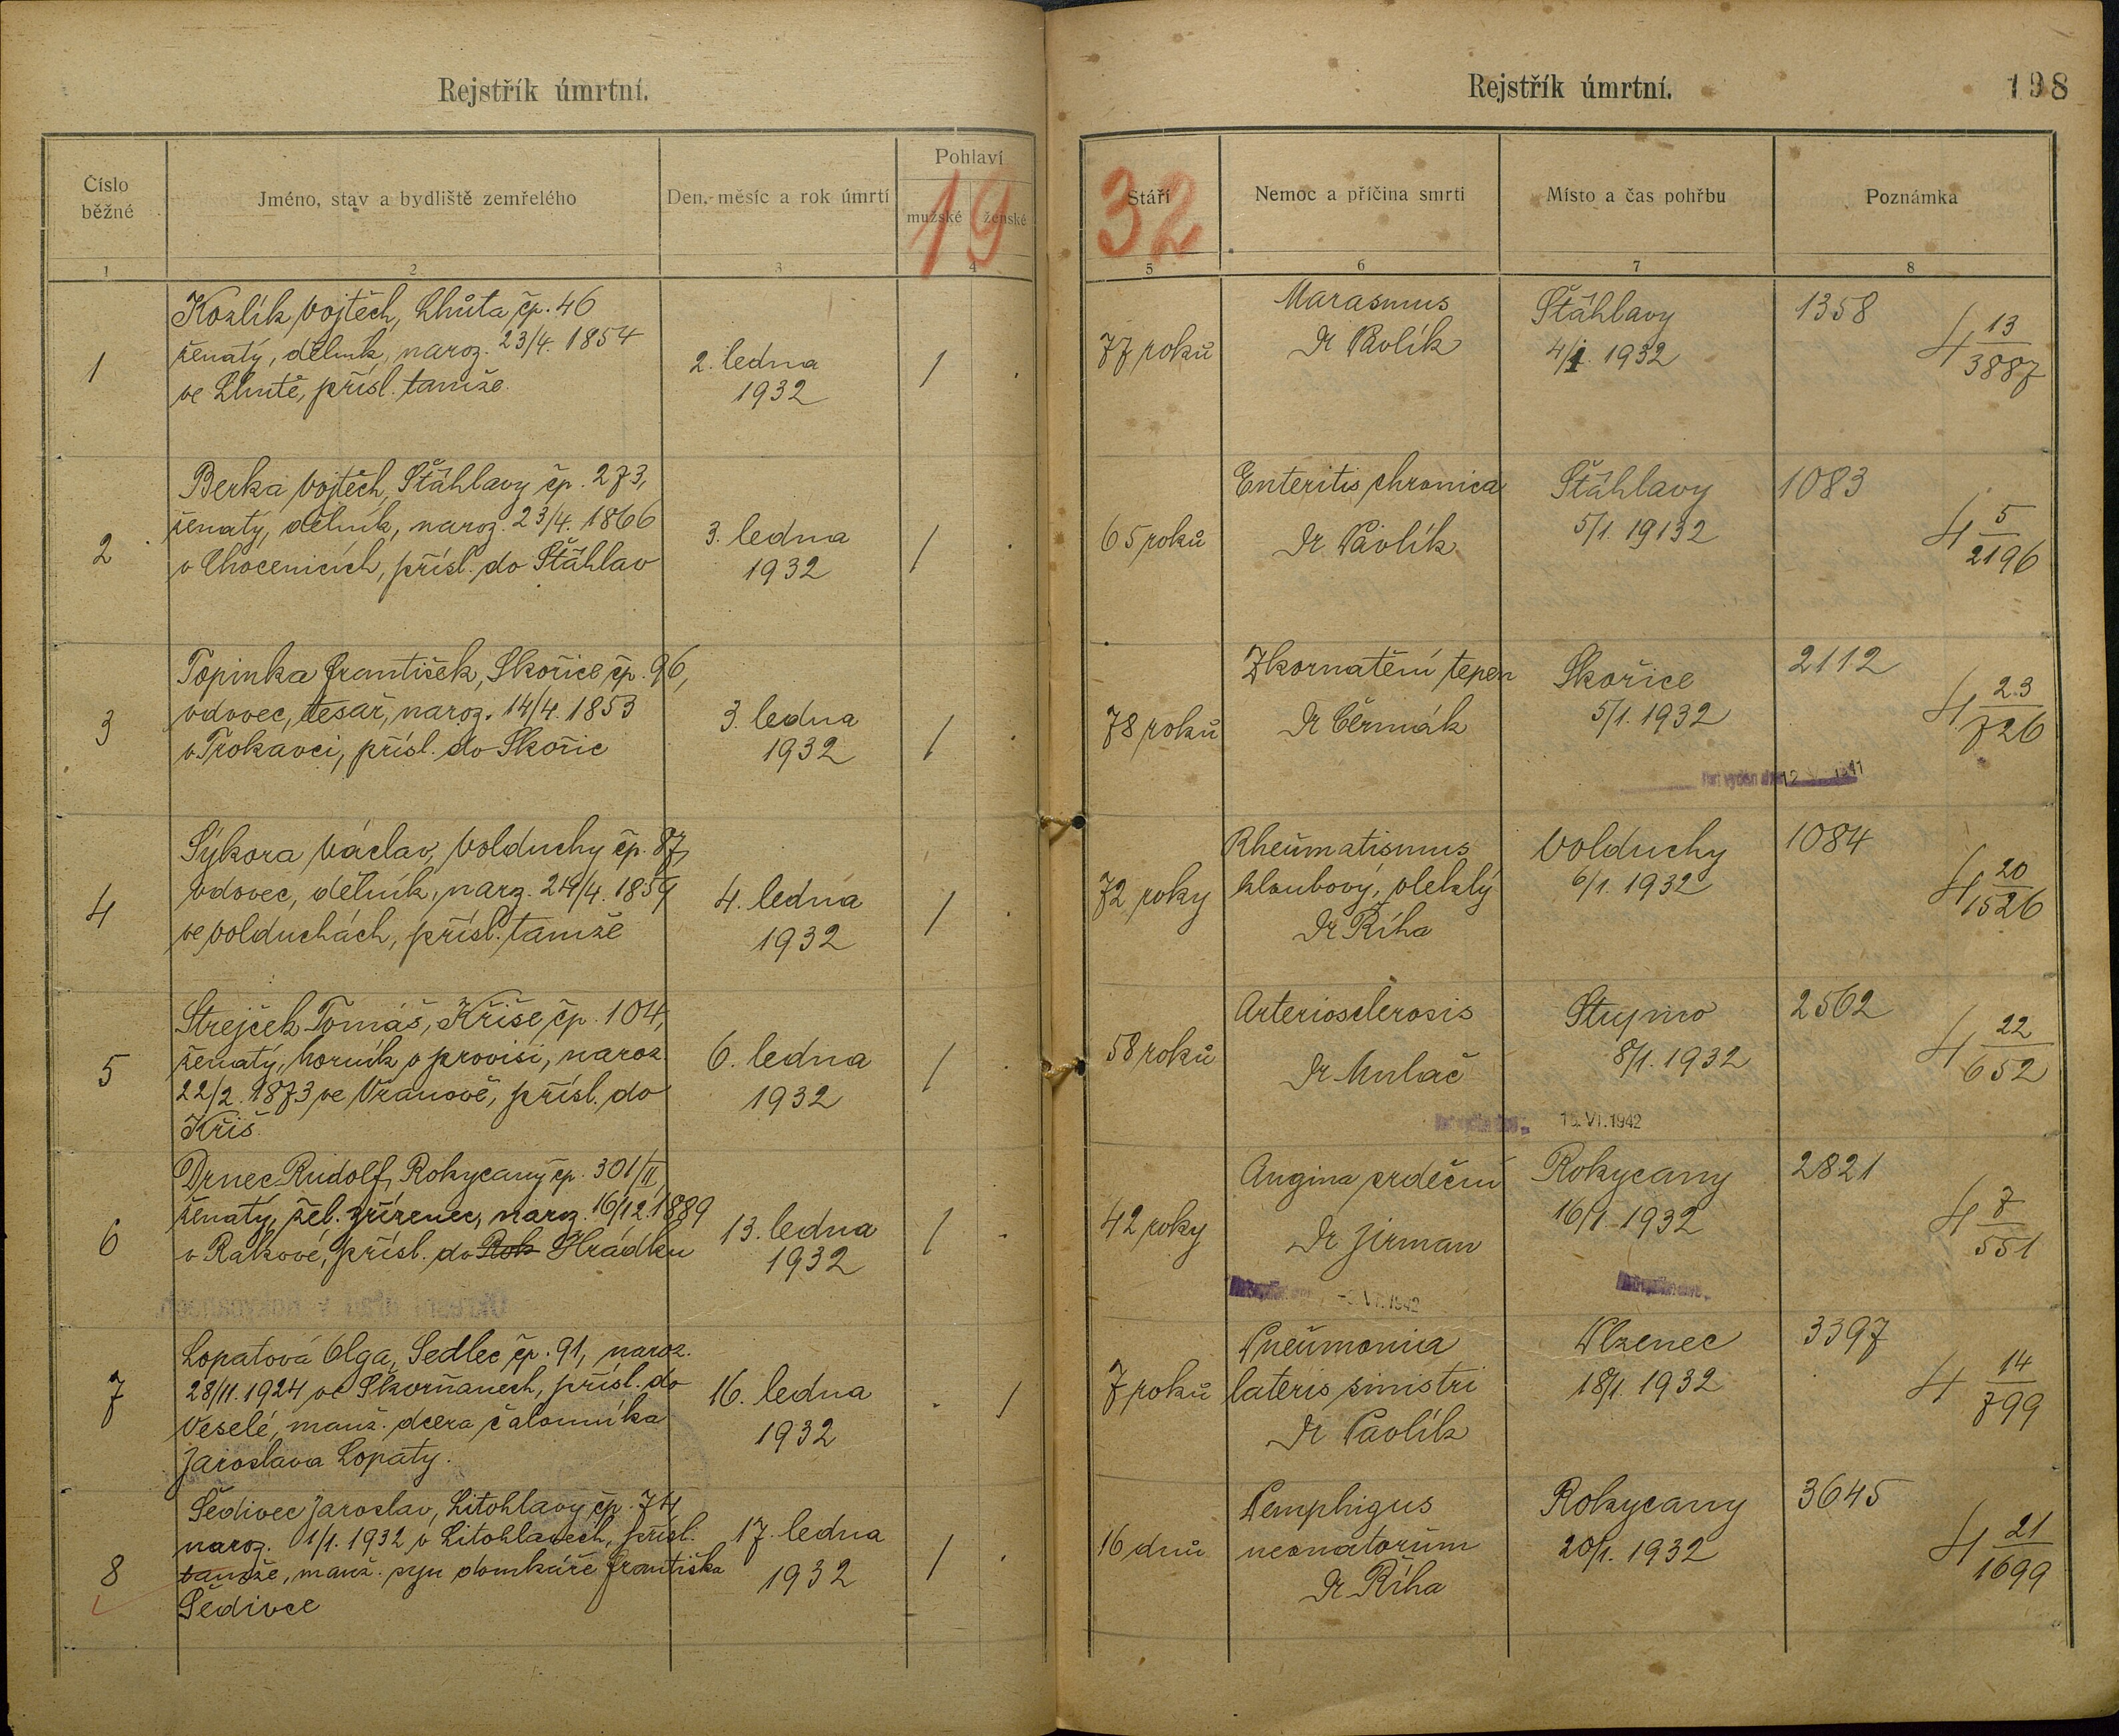 Rejstřík úmrtní.
Číslo běžné
Jméno, stav a bydliště zemřelého
Den, měsíc a rok úmrtí
Pohlaví
mužské
ženské
19
1
2
3
4
1
Kozlík Vojtěch, Lhůta čp. 46
ženatý, dělník, naroz. 23/4. 1854
ve Lhutě, přísl. tamže.
2. ledna
1932
/
2
Berka Vojtěch, Štáhlavy čp. 273,
ženatý, dělník, naroz. 23/4. 1866
v Chocenicích, přísl. do Štáhlav
3. ledna
1932
/
3
Topinka František, Skořice čp. 96,
vdovec, tesař, naroz. 14/4. 1853
v Trokavci, přísl. do Skořic
3. ledna
1932
/
4
Sýkora Václav, Volduchy čp. 87,
vdovec, dělník, narz. 24/4. 1859
ve Volduchách, přísl. tamže
4. ledna
1932
/
5
Strejček Tomáš, Kříše čp. 104,
ženatý, horník v provisi, naroz.
22/2. 1873 ve Vranově, přísl. do
Kříš.
6. ledna
1932
/
6
Drnec Rudolf, Rokycany čp. 301/II,
ženatý, žel. zřízenec, naroz. 16/12. 1889
v Rakové, přísl. do Rok Hrádku
13. ledna
1932
/
7
Lopatová Olga, Sedlec čp. 91, naroz.
28/11. 1924 ve Skvrňanech, přísl. do
Veselé, manž. dcera čalouníka
Jaroslava Lopaty.
16. ledna
1932
/
8
Šedivec Jaroslav, Litohlavy čp. 74
naroz. 1/1. 1932 v Litohlavech, přísl.
tamže, manž. syn domkáře Františka
Šedivce
17. ledna
1932
/
Rejstřík úmrtní.
198
Stáří
32
Nemoc a příčina smrti
Místo a čas pohřbu
Poznámka
5
6
7
8
77 roků
Marasmus
Dr Pavlík
Štáhlavy
4/1. 1932
1358
4 13/3887
65 roků
Enteritis chronica
Dr Pavlík
Štáhlavy
5/1. 19132
1083
4 5/2196
78 roků
Zkornatění tepen
Dr Čermák
Skořice
5/1. 1932
2112
4 23/726
72 roky
Rheumatismus
kloubový, vleklý
Dr Říha
Volduchy
6/1. 1932
1084
4 20/1526
58 roků
Arteriosclerosis
Dr Mulač
Stupno
8/1. 1932
2562
4 22/652
VI. 1942
42 roky
Angina srdeční
Dr Jirman
Rokycany
16/1. 1932
2821
4 7/551
VI. 1942
7 roků
Pneumonia
lateris sinistri
Dr Pavlík
Plzenec
18/1. 1932
3397
4 14/799
16 dnů
Pemphigus
neonatorum
Dr Říha
Rokycany
20/1. 1932
3645
4 21/1699